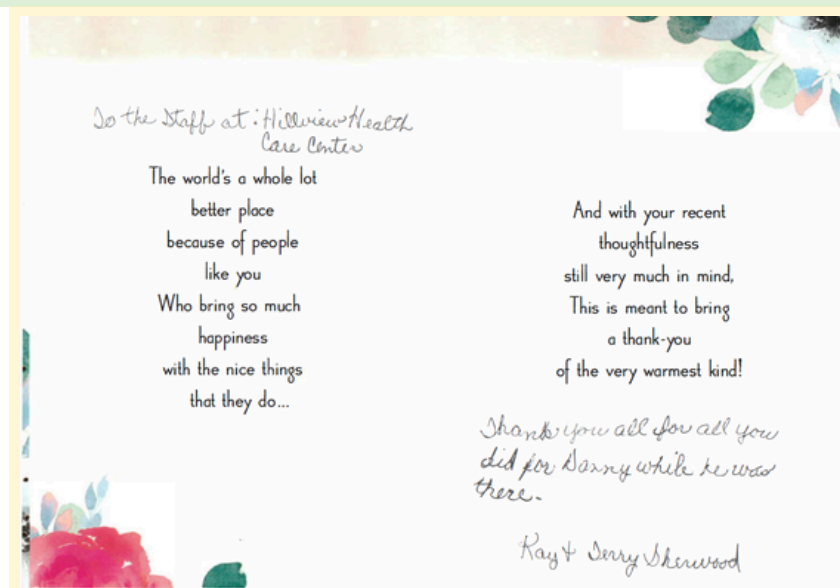 To the Staff at: Hillview Health
Care Center
The world's a whole lot
better place
because of people
like you
Who bring so much
happiness
with the nice things
that they do...
And with your recent
thoughtfulness
still very much in mind,
This is meant to bring
a thank-you
of the very warmest kind!
Thank you all for all you
did for Danny while he was
there.
Kay & Jerry Sherwood